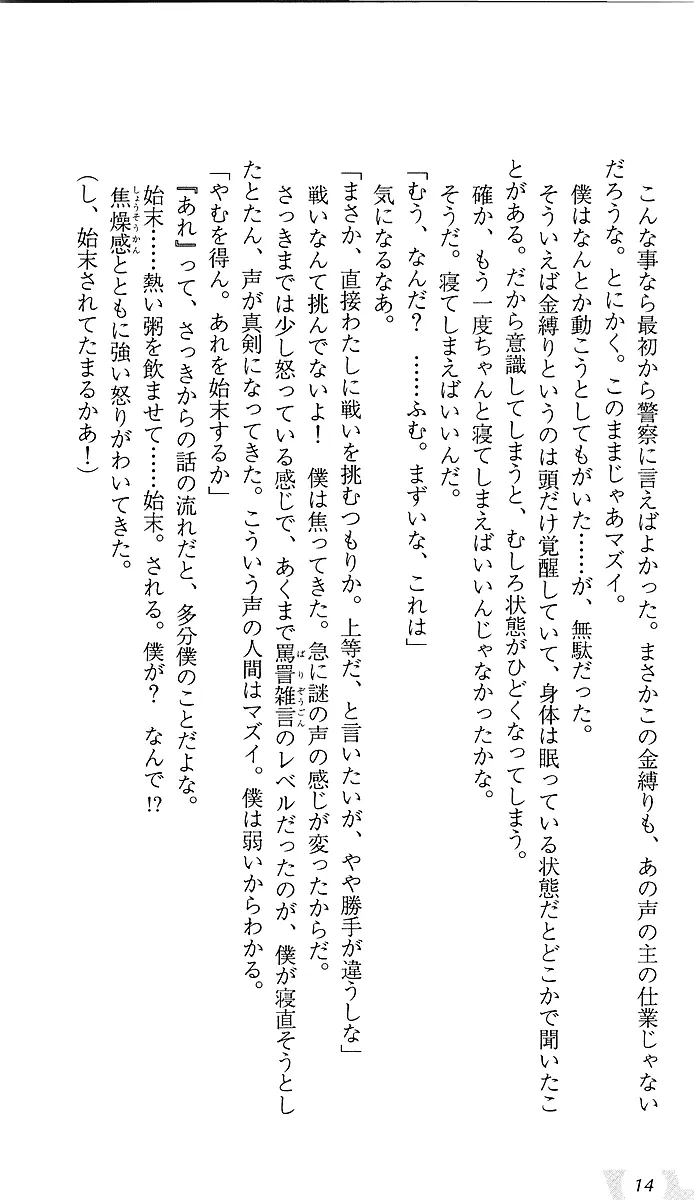 こんな事なら最初から警察に言えばよかった。まさかこの金縛りも、あの声の主の仕業じゃない
だろうな。とにかく。このままじゃあマズイ。
僕はなんとか動こうとしてもがいた……が、無駄だった。
そういえば金縛りというのは頭だけ覚醒していて、身体は眠っている状態だとどこかで聞いたこ
とがある。だから意識してしまうと、むしろ状態がひどくなってしまう。
確か、もう一度ちゃんと寝てしまえばいいんじゃなかったかな。
そうだ。寝てしまえばいいんだ。
「むう、なんだ？　……ふむ。まずいな、これは」
気になるなあ。
「まさか、直接わたしに戦いを挑むつもりか。上等だ、と言いたいが、やや勝手が違うしな」
戦いなんて挑んでないよ！　僕は焦ってきた。急に謎の声の感じが変ったからだ。
さっきまでは少し怒っている感じで、あくまで罵詈雑言のレベルだったのが、僕が寝直そうとし
ばりぞうごん
たとたん、声が真剣になってきた。こういう声の人間はマズイ。僕は弱いからわかる。
「やむを得ん。あれを始末するか」
『あれ』って、さっきからの話の流れだと、多分僕のことだよな。
始末……熱い粥を飲ませて……始末。される。僕が？　なんで!?
焦燥感とともに強い怒りがわいてきた。
しょうそうかん
（し、始末されてたまるかあ！）
14